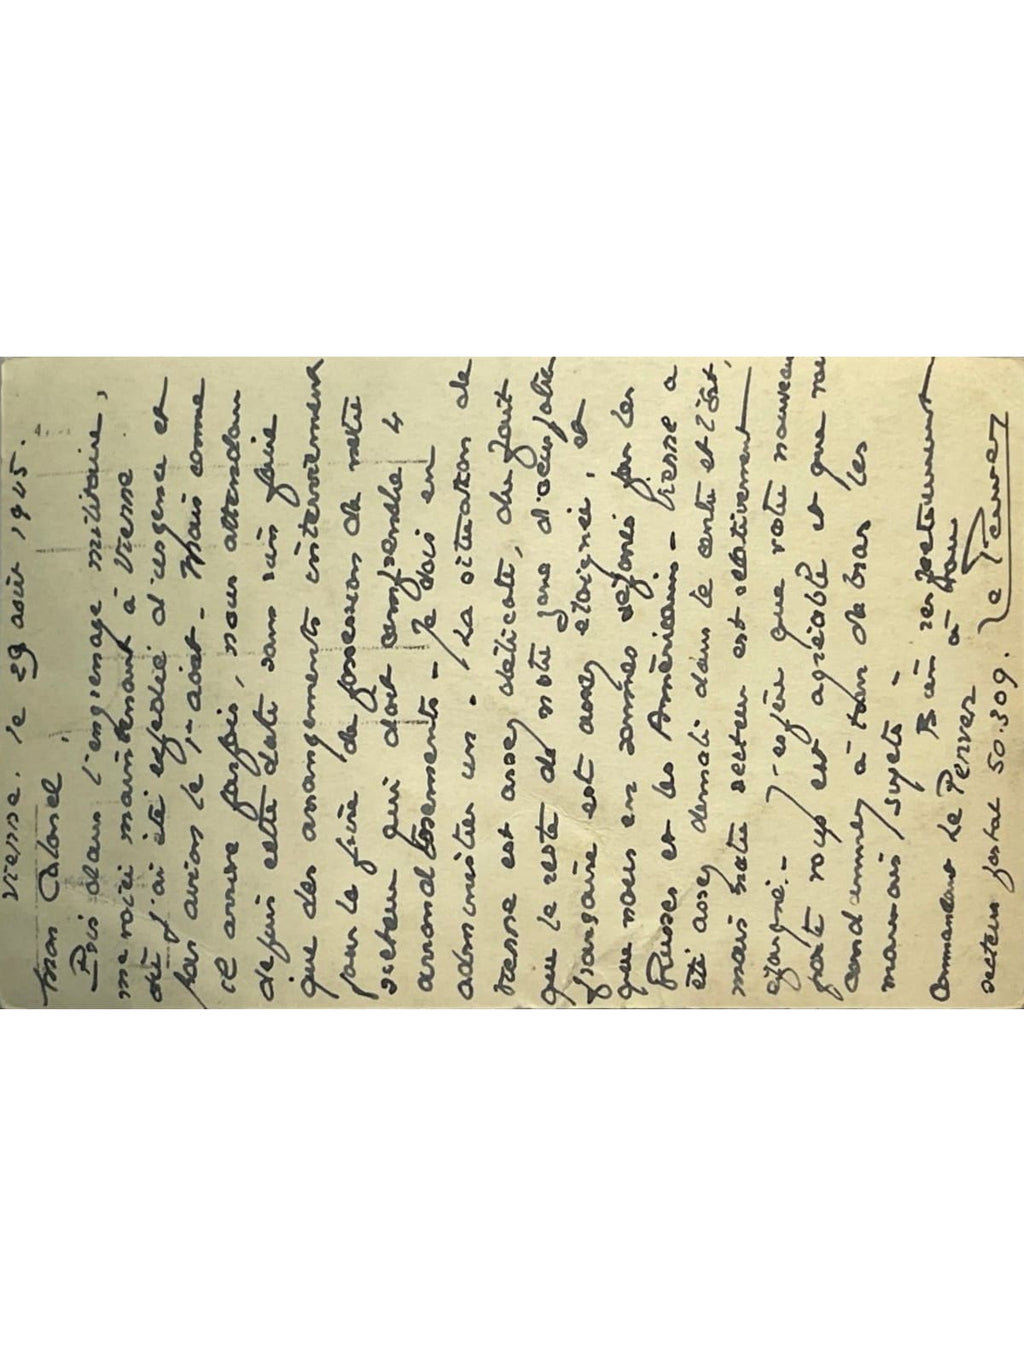 Vienne. le 29 août 1945.
Mon Colonel,
Pris dans l'engrenage militaire,
me voici maintenant à Vienne
où j'ai été expédié d'urgence et
par avion le 1er août - Mais comme
il arrive parfois, nous attendons
depuis cette date sans rien faire
que des arrangements interviennent
pour la prise de possession de notre
secteur qui doit comprendre 4
arrondissements - Je dois en
administrer un - La situation de
Vienne est assez délicate, du fait
que le reste de notre zone d'occupation
française est assez éloignée, et
que nous en sommes séparés par les
Russes et les Américains - Vienne a
été assez démoli dans le centre et l'Est,
mais notre secteur est relativement
épargné. - J'espère que votre nouveau
poste vous est agréable et que vous
condamnez à tour de bras les
mauvais sujets -
Bien respectueusement
à vous
Commandant Le Penven
secteur postal 50.309. Le Penven